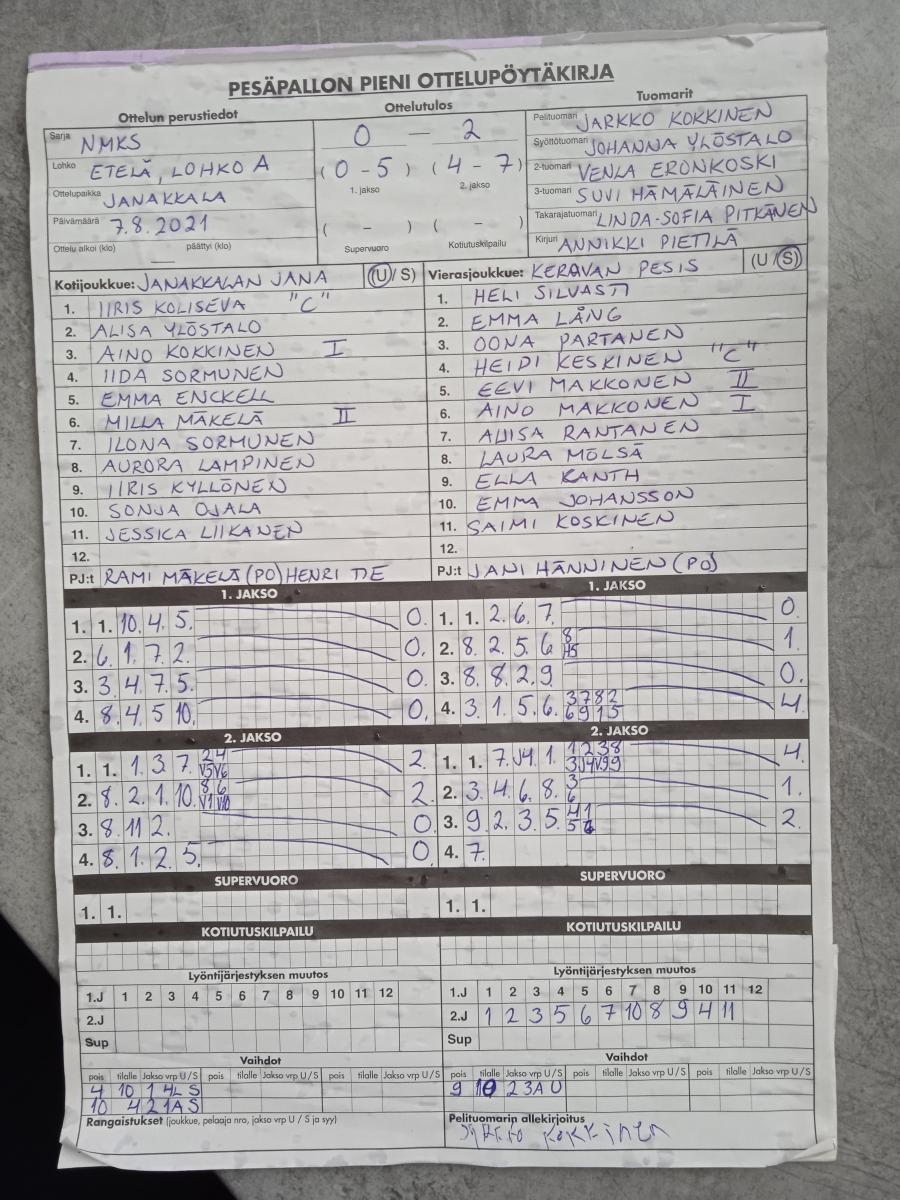 PESÄPALLON PIENI OTTELUPÖYTÄKIRJA
Ottelun perustiedot Ottelutulos Tuomarit
Sarja NMKS
Lohko ETELÄ, LOHKO A
Ottelupaikka JANAKKALA
Päivämäärä 7.8.2021
Ottelu alkoi (klo) päättyi (klo)
0 - 2
(0-5) (4-7)
1. jakso 2. jakso
( - ) ( - )
Supervuoro Kotiutuskilpailu
Pelituomari JARKKO KOKKINEN
Syöttötuomari JOHANNA YLÖSTALO
2-tuomari VENLA ERONKOSKI
3-tuomari SUVI HÄMÄLÄINEN
Takarajatuomari LINDA-SOFIA PITKÄNEN
Kirjuri ANNIKKI PIETILÄ
Kotijoukkue: JANAKKALAN JANA (U/S)
1. IIRIS KOLISEVA "C"
2. ALISA YLÖSTALO
3. AINO KOKKINEN I
4. IIDA SORMUNEN
5. EMMA ENCKELL
6. MILLA MÄKELÄ II
7. ILONA SORMUNEN
8. AURORA LAMPINEN
9. IIRIS KYLLÖNEN
10. SONJA OJALA
11. JESSICA LIIKANEN
12.
PJ:t RAMI MÄKELÄ (PO) HENRI TIE
Vierasjoukkue: KERAVAN PESIS (U/S)
1. HELI SILVASTI
2. EMMA LÅNG
3. OONA PARTANEN
4. HEIDI KESKINEN "C"
5. EEVI MAKKONEN II
6. AINO MAKKONEN I
7. ALIISA RANTANEN
8. LAURA MÖLSÄ
9. ELLA KANTH
10. EMMA JOHANSSON
11. SAIMI KOSKINEN
12.
PJ:t JANI HÄNNINEN (PO)
1. JAKSO
1. 1. 10. 4. 5. 0.
2. 6. 1. 7. 2. 0.
3. 3. 4. 7. 5. 0.
4. 8. 4. 5 10. 0.
1. JAKSO
1. 1. 2. 6. 7. 0.
2. 8. 2. 5. 6 8 1.
3. 8. 8. 2. 9. 0.
4. 3. 1. 5. 6. 3782 4.
6915
2. JAKSO
1. 1. 1. 3. 7. 24 2.
V5V6
2. 8. 2. 1. 10. 86 2.
V1V10
3. 8. 11 2. 0
4. 8. 1. 2. 5. 0
2. JAKSO
1. 1. 7. 1. 1238 4.
2. 3. 4. 6. 8. 3 1.
6
3. 9. 2. 3. 5. 41 2.
4. 7.
SUPERVUORO SUPERVUORO
1. 1. 1. 1.
KOTIUTUSKILPAILU KOTIUTUSKILPAILU
Lyöntijärjestyksen muutos
1.J 1 2 3 4 5 6 7 8 9 10 11 12
2.J
Sup
Lyöntijärjestyksen muutos
1.J 1 2 3 4 5 6 7 8 9 10 11 12
2.J 1 2 3 5 6 7 10 8 9 4 11
Sup
Vaihdot
pois tilalle Jakso vrp U/S pois tilalle Jakso vrp U/S pois tilalle Jakso vrp U/S
4 10 1 4L S
10 4 2 1A S
Rangaistukset (joukkue, pelaaja nro, jakso vrp U / S ja syy)
Vaihdot
pois tilalle Jakso vrp U/S pois tilalle Jakso vrp U/S pois tilalle Jakso vrp U/S
9 10 2 3A U
Pelituomarin allekirjoitus
Jarkko Kokkinen